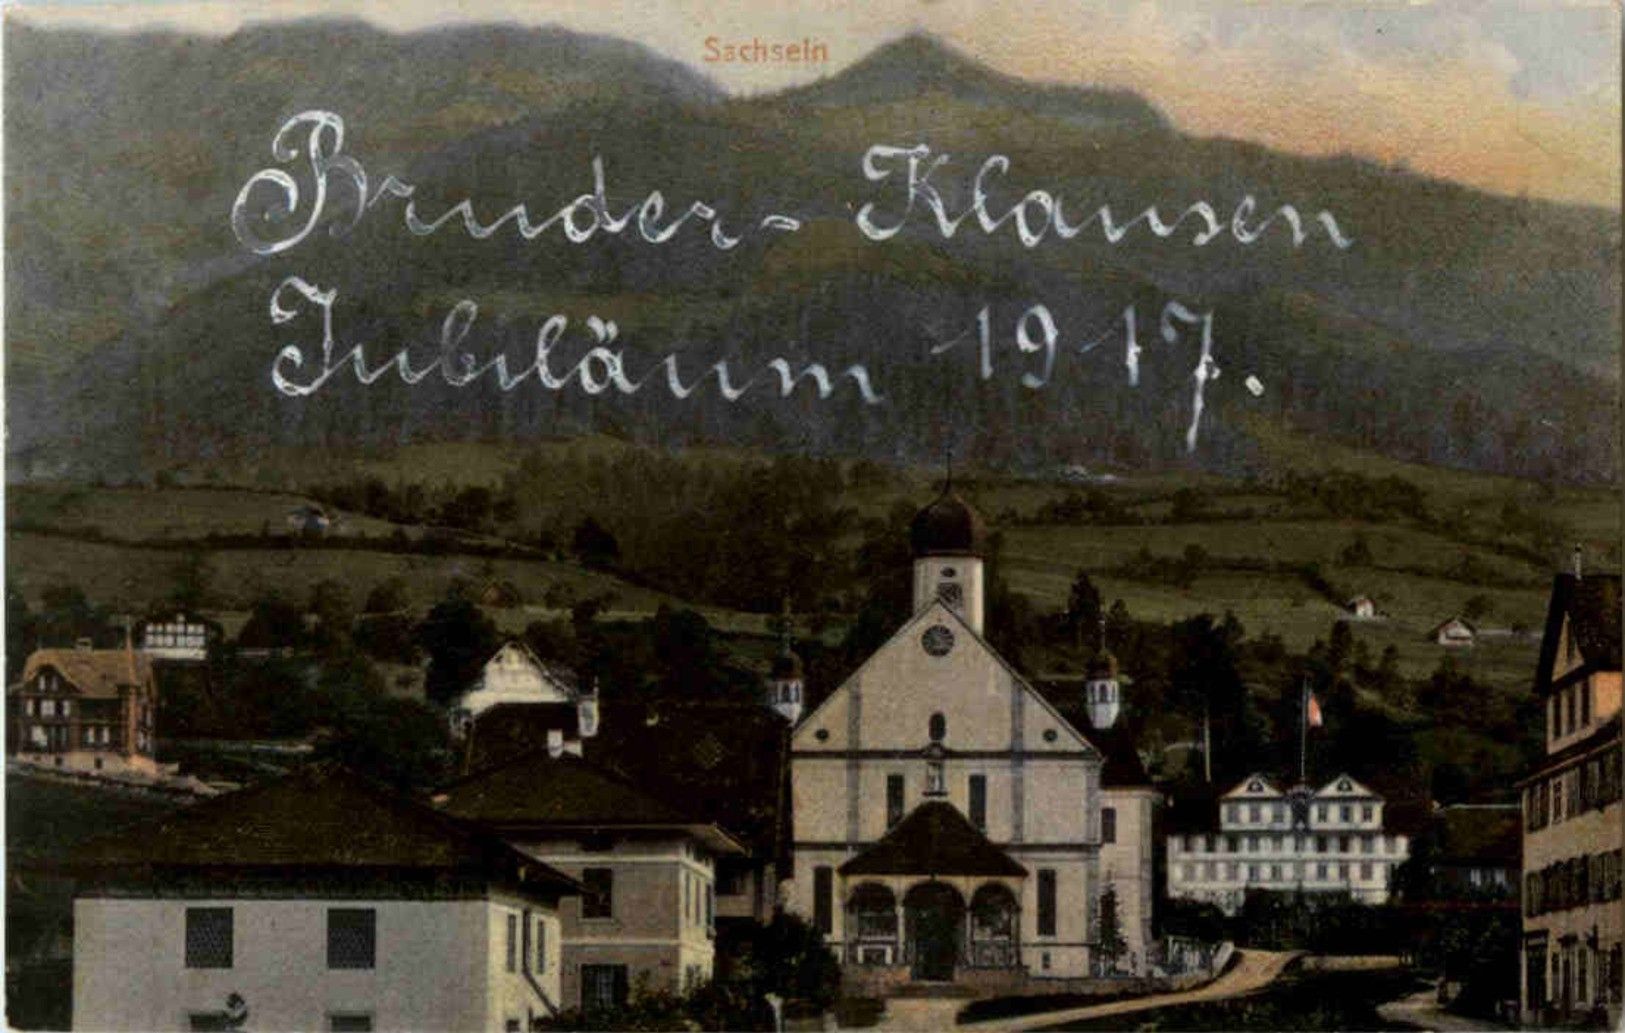 Sachseln
Bruder-Klausen
Jubiläum 1917.